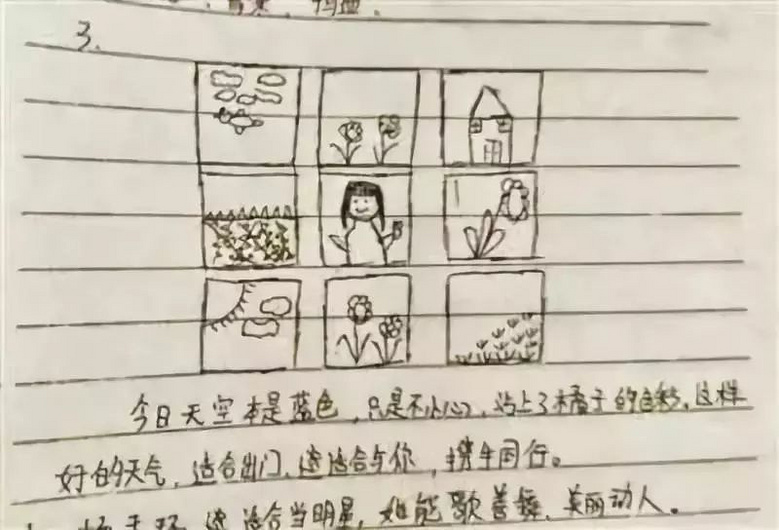 3.
今日天空本是蓝色,只是不小心,沾上了橘子的色彩,这样
好的天气,适合出门,速适合与你,携手同行。
适合当明星,她能歌善舞,美丽动人。